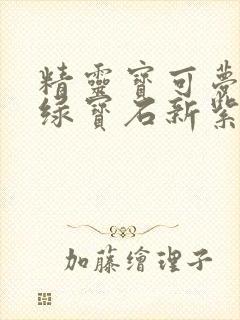 精靈寶可夢
綠寶石新紫
加藤繪理子